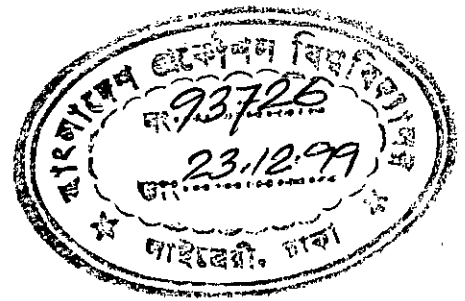 বাংলাদেশ প্রকৌশল বিশ্ববিদ্যালয়
নং 93726
তাং 23.12.99
লাইব্রেরী, ঢাকা